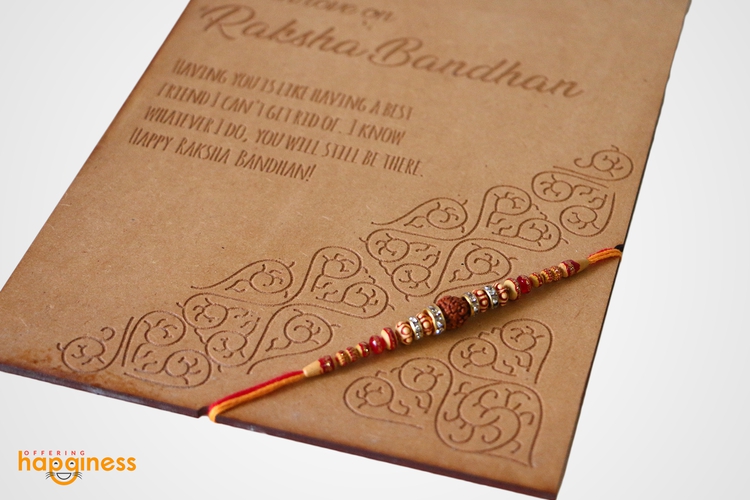 love on
Raksha Bandhan
HAVING YOU IS LIKE HAVING A BEST
FRIEND I CAN'T GET RID OF. I KNOW
WHATEVER I DO, YOU WILL STILL BE THERE.
HAPPY RAKSHA BANDHAN!
OFFERING
happiness